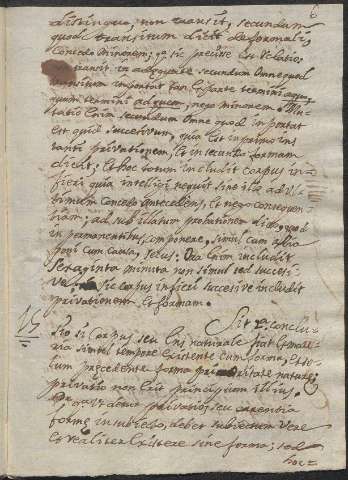 6
distinguo, non transit, secundum
quod transitum dicit de formali,
Concedo minorem; q̃a sic precise est relatio
transit in adequate secundum omne quod
transitum importat tan ex parte termini a quo,
quam termini ad quem, nego minorem.
tatio enim secundum omne quod importat
est quid succesivum, quia est in primo ins
tanti privationem, et in secundo formam
dicit; et hoc totum includit corpus in
fieri quia intelligi nequit sine illa ad ul
timum Concedo Antecedens, et nego consequen
tiam; ad subillatam probationem dico, quod
in permanentibus, componere, simul cum
poni cum causa, secus: una enim includit
sexaginta minuta non simul sed succesi
ve; sic corpus in fieri succesive includit
privationem, et formam.
Sit 2.ª conclu
15
sio si corpus seu ens naturale fiat ex mate
ria simul tempore existente cum forma, et so
lum precedente forma prioritate naturæ;
privatio non erit principium illius.
Prove vel privatio, seu carentia
formę in subiecto, debet subiectum vere
et realiter existere sine forma; sed
hoc=